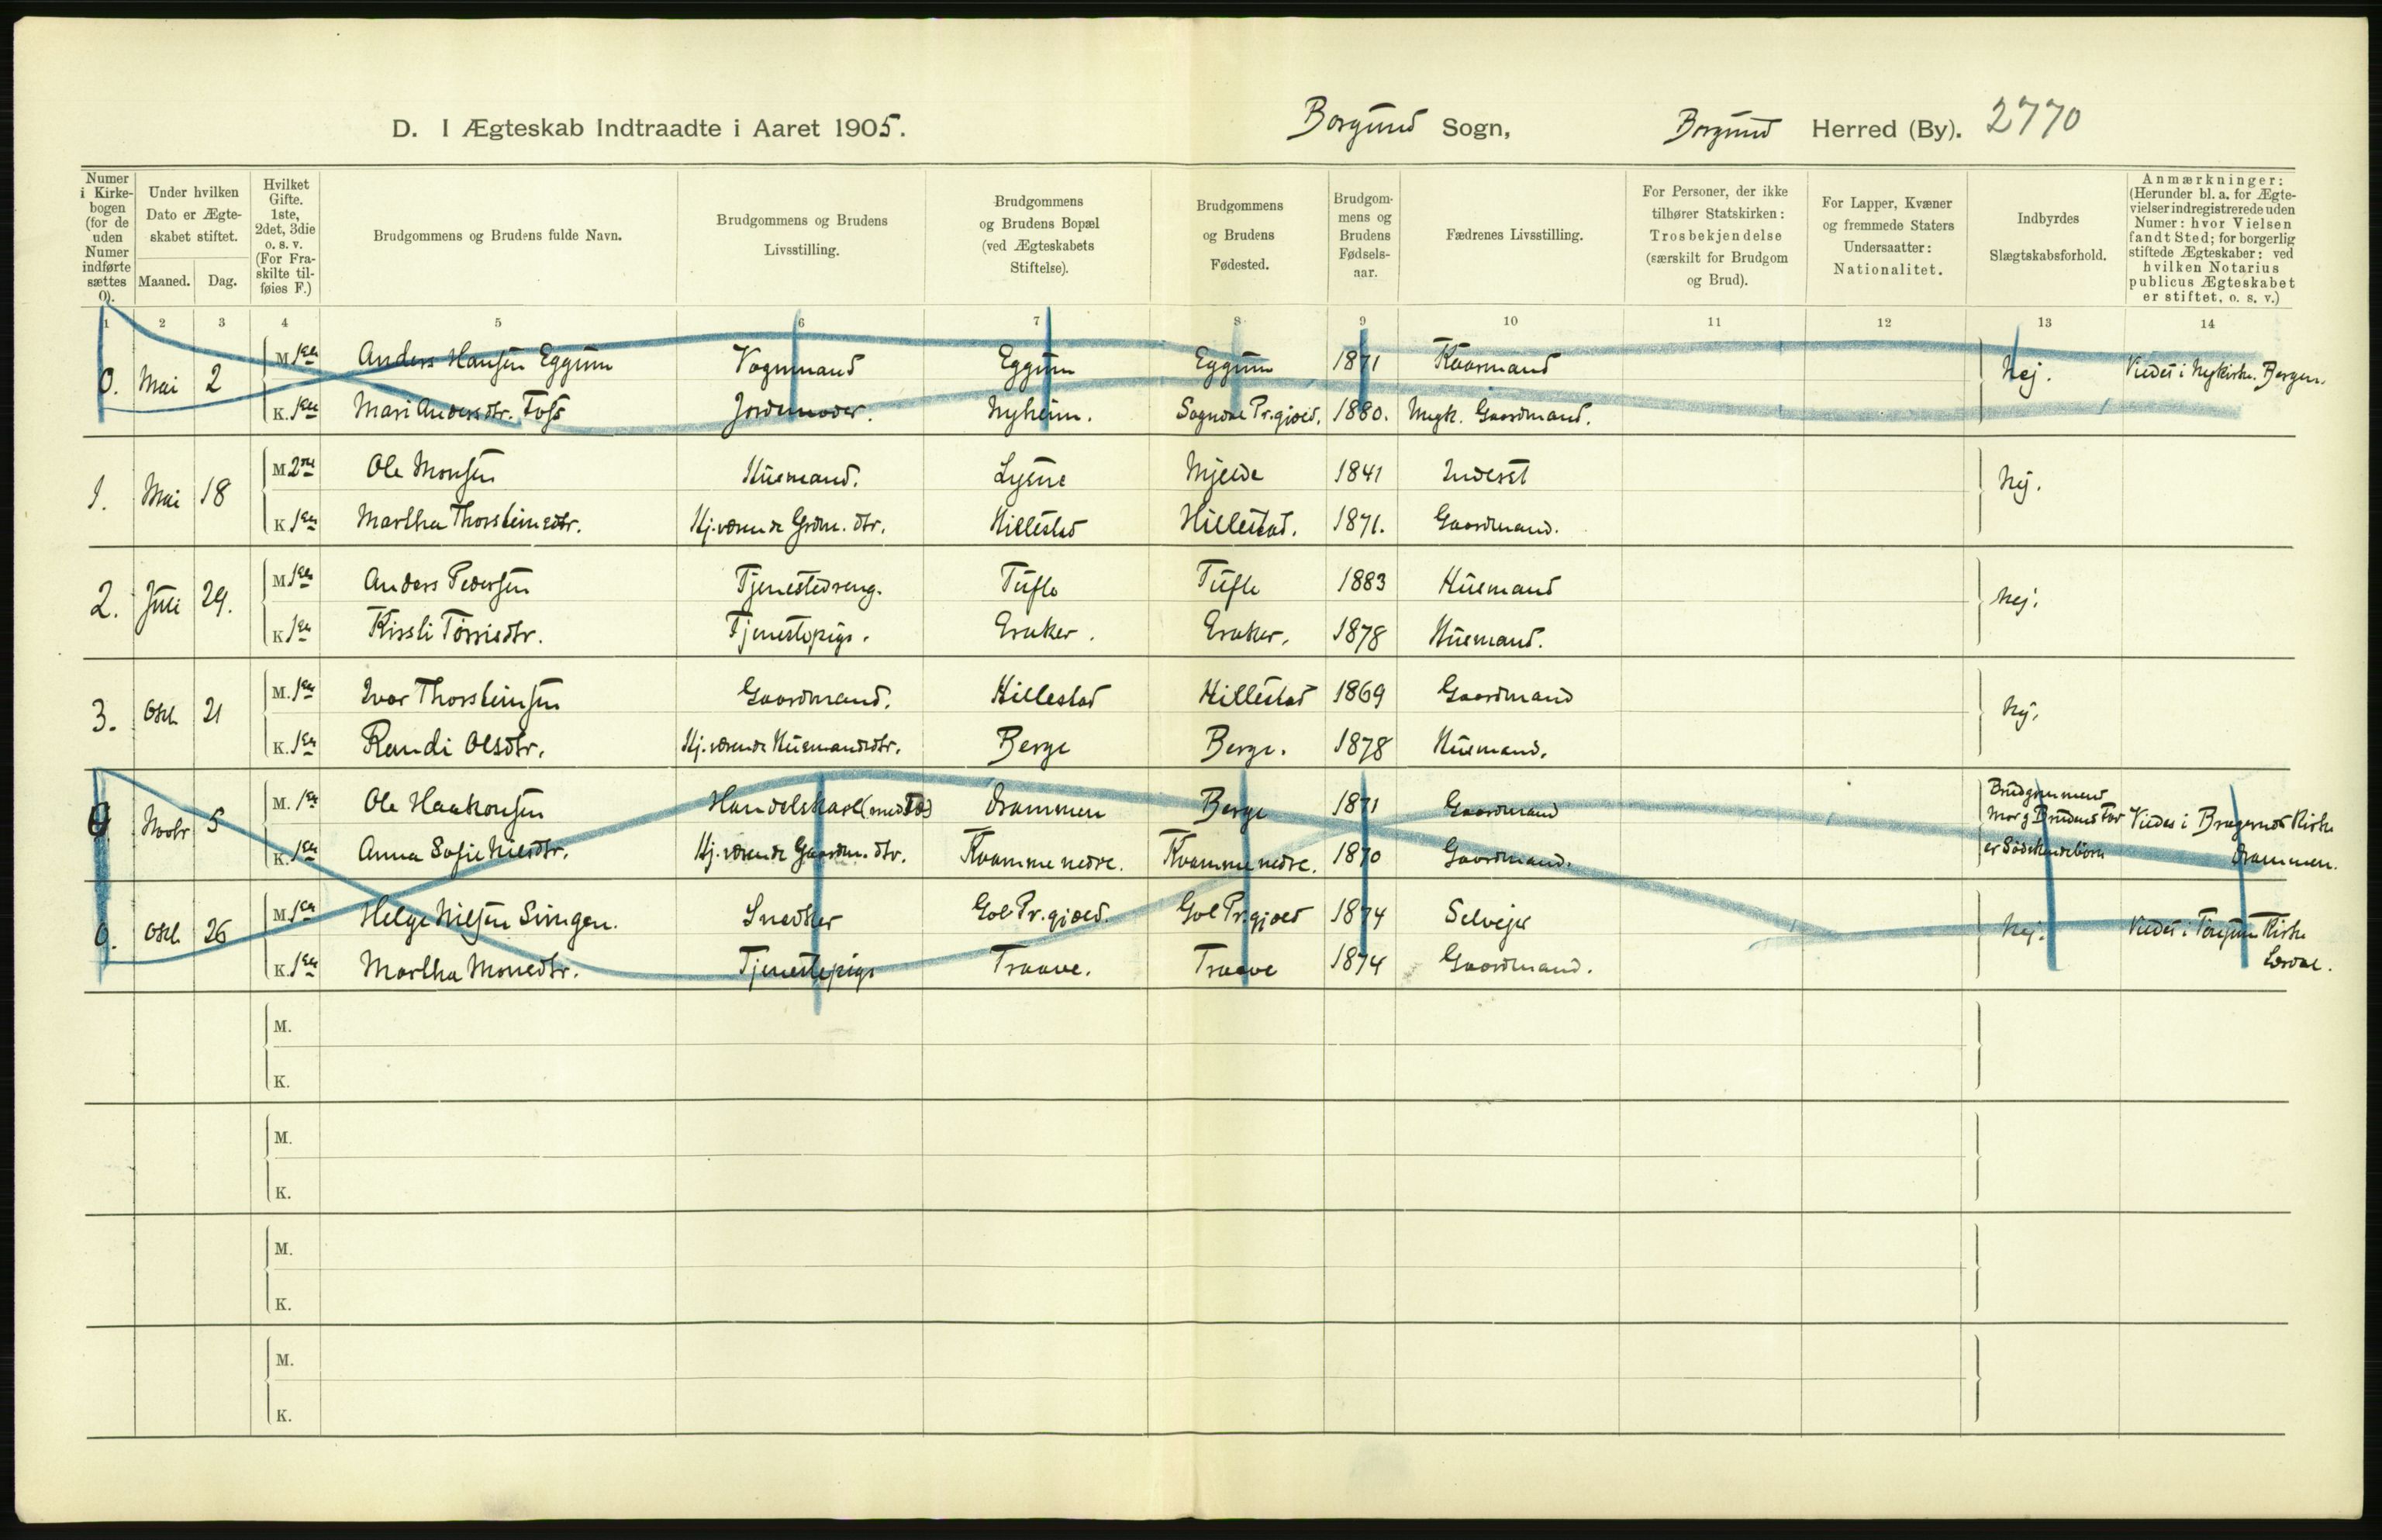 D. I Ægteskab Indtraadte i Aaret 1905. Borgund Sogn, Borgund Herred (By). 2770
Numer i Kirkebogen (for de uden Numer indførte sættes 0).
Under hvilken Dato er Ægteskabet stiftet.
Maaned. Dag.
Hvilket Gifte. 1ste, 2det, 3die o. s. v. (For Fraskilte tilføies F.)
Brudgommens og Brudens fulde Navn.
Brudgommens og Brudens Livsstilling.
Brudgommens og Brudens Bopæl (ved Ægteskabets Stiftelse).
Brudgommens og Brudens Fødested.
Brudgommens og Brudens Fødselsaar.
Fædrenes Livsstilling.
For Personer, der ikke tilhører Statskirken: Trosbekjendelse (særskilt for Brudgom og Brud).
For Lapper, Kvæner og fremmede Staters Undersaatter: Nationalitet.
Indbyrdes Slægtskabsforhold.
Anmærkninger: (Herunder bl. a. for Ægtevielser indregistrerede uden Numer: hvor Vielsen fandt Sted; for borgerlig stiftede Ægteskaber: ved hvilken Notarius publicus Ægteskabet er stiftet, o. s. v.)
1 2 3 4 5 6 7 8 9 10 11 12 13 14
0. Mai 2 M 1ste Anders Hansen Eggum Vognmand Eggum Eggum 1871 Nej. Viedes i Nykirke. Bergen.
K. 1ste Mari Andersdtr. Foss Jordemoder. Nyheim. Sogndal Pr.gjæld. 1880. Gaardmand.
1. Mai 18 M 2det Ole Monsen Husmand. Lysne Mjelde 1841 Inderst Nej.
K 1ste Martha Thorsteinsdtr. Hj.værende Grdm. dtr. Hillestad Hillestad. 1871. Gaardmand.
2. Juli 29. M 1ste Anders Pedersen Tjenestedreng. Tufte Tufte 1883 Husmand Nej.
K 1ste Kirsti Torrisdtr. Tjenestepige. Eraker. Eraker. 1878 Husmand.
3. Okt. 21 M. 1ste Ivar Thorsteinsen Gaardmand. Hillestad Hillestad 1869 Gaardmand Nej.
K. 1ste Randi Olsdtr. Hj.værende Husmandsdtr. Berge Berge. 1878 Husmand.
0 Novbr 5 M. 1ste Ole Haakonsen Handelskarl Drammen Berge 1871 Gaardmand Brudgommens Mor og Brudens Far Viedes i Bragernes Kirke
K. 1ste Anna Sofie Nilsdtr. Hj.værende Gaardm. dtr. Kvamme nedre. Kvamme nedre. 1870 Gaardmand. er Sødskendebørn Drammen.
0. Okt. 26 M. 1ste Helge Nilsen Snedker Gol Pr.gjæld. Gol Pr.gjæld 1874 Selveier Nej. Viedes i Tønjum Kirke
K. 1ste Martha Monsdtr. Tjenestepige Traave. Traave 1874 Gaardmand. Lærdal.
M.
K.
M.
K.
M.
K.
M.
K.